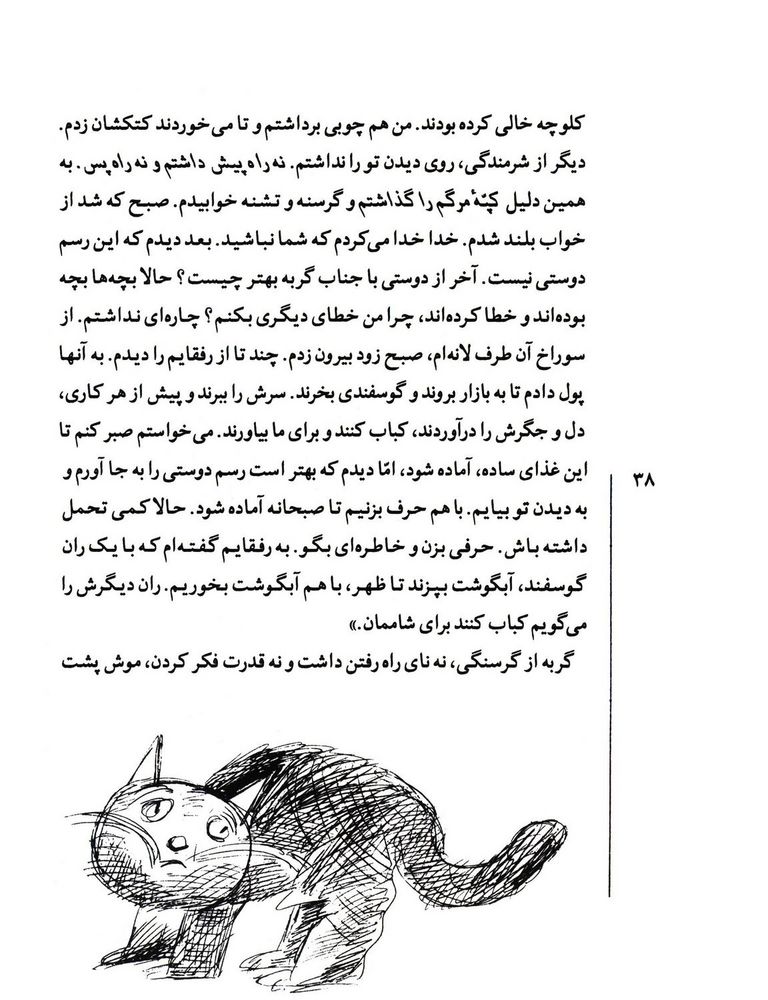 کلوچه خالی کرده بودند. من هم چوبی برداشتم و تا می‌خوردند کتکشان زدم.
دیگر از شرمندگی، روی دیدن تو را نداشتم. نه راه پیش داشتم و نه راه پس. به
همین دلیل کپّهٔ مرگم را گذاشتم و گرسنه و تشنه خوابیدم. صبح که شد از
خواب بلند شدم. خدا خدا می‌کردم که شما نباشید. بعد دیدم که این رسم
دوستی نیست. آخر از دوستی با جناب گربه بهتر چیست؟ حالا بچه‌ها بچه
بوده‌اند و خطا کرده‌اند، چرا من خطای دیگری بکنم؟ چاره‌ای نداشتم. از
سوراخ آن طرف لانه‌ام، صبح زود بیرون زدم. چند تا از رفقایم را دیدم. به آنها
پول دادم تا به بازار بروند و گوسفندی بخرند. سرش را ببرند و پیش از هر کاری،
دل و جگرش را درآوردند، کباب کنند و برای ما بیاورند. می‌خواستم صبر کنم تا
این غذای ساده، آماده شود، امّا دیدم که بهتر است رسم دوستی را به جا آورم و
به دیدن تو بیایم. با هم حرف بزنیم تا صبحانه آماده شود. حالا کمی تحمل
داشته باش. حرفی بزن و خاطره‌ای بگو. به رفقایم گفته‌ام که با یک ران
گوسفند، آبگوشت بپزند تا ظهر، با هم آبگوشت بخوریم. ران دیگرش را
می‌گویم کباب کنند برای شاممان.»
گربه از گرسنگی، نه نای راه رفتن داشت و نه قدرت فکر کردن، موش پشت
۳۸